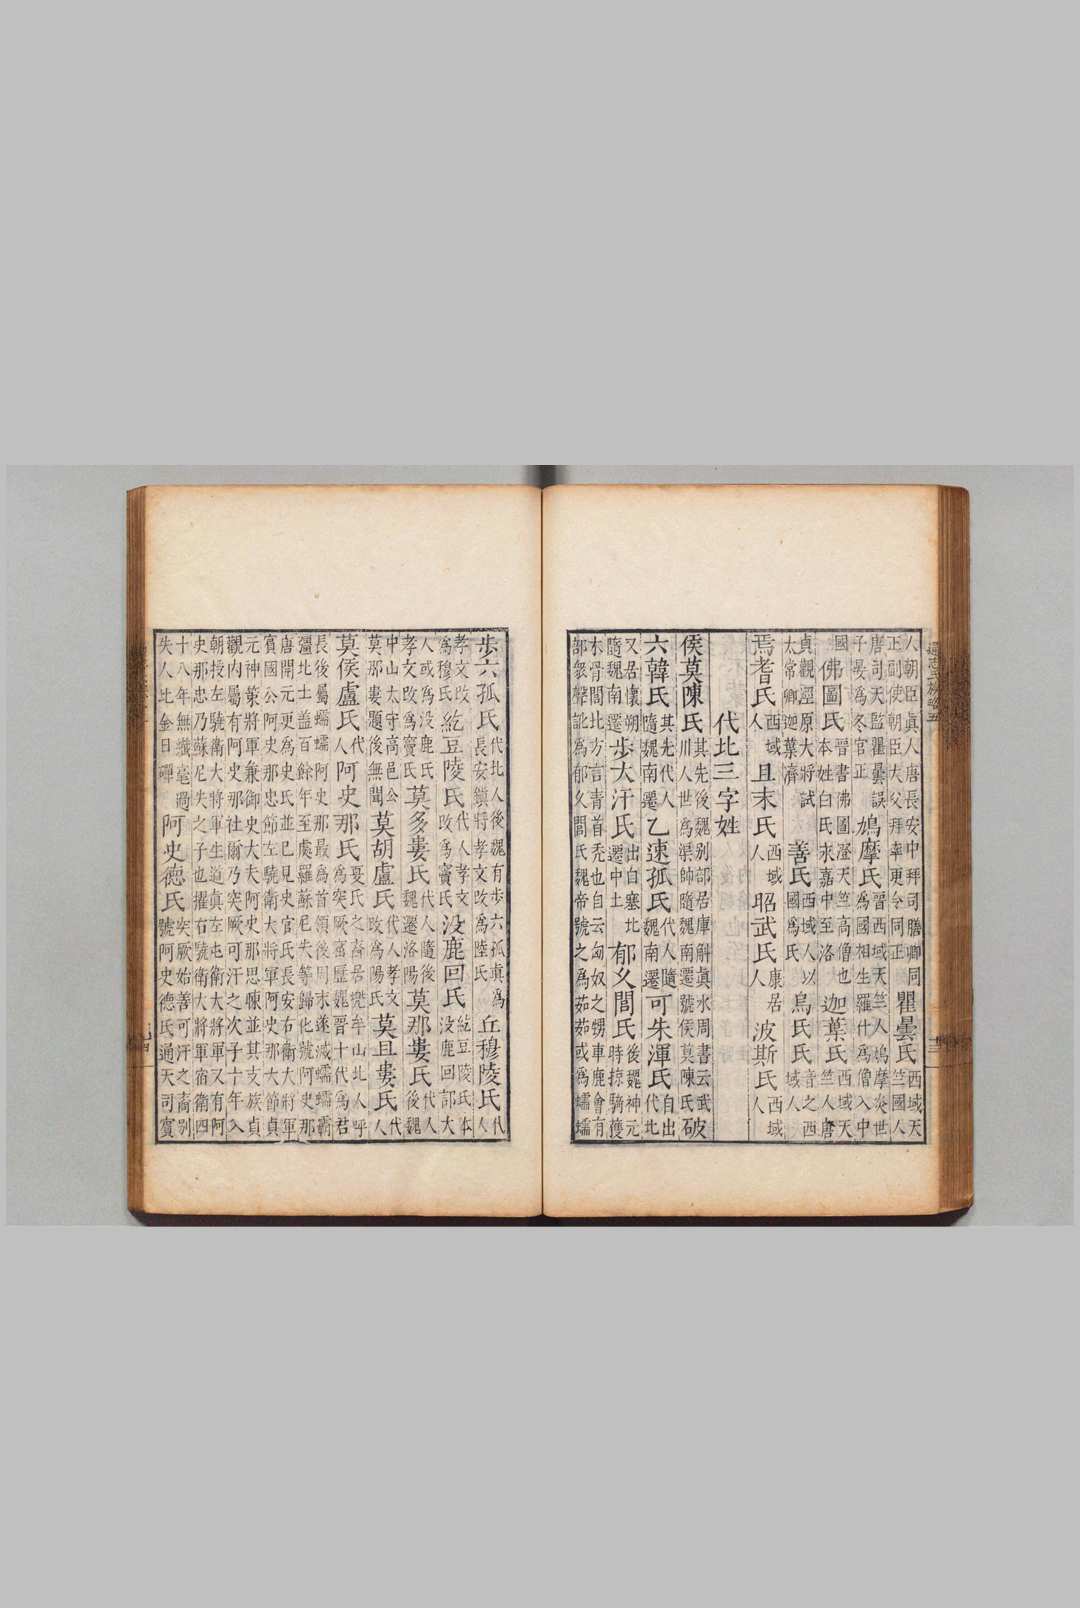 人朝臣眞人唐長安中拜司膳卿同
正副使朝臣大父拜率更令同正
瞿曇氏 西域天竺國人
唐司天監瞿曇譔
子晏爲冬官正
鳩摩氏 晉西域天竺人鳩摩炎世
爲國相生羅什爲僧入中
國 佛圖氏 晉書佛圖澄天竺高僧也
本姓白氏永嘉中至洛
迦葉氏 西域天竺人唐
貞觀涇原大將試
太常卿迦葉濟
善氏 西域人以國爲氏
烏氏氏 音之西域人
焉耆氏 西域人 且末氏 西域人 昭武氏 康居人 波斯氏 西域人
代北三字姓
侯莫陳氏 其先後魏别部居庫斛眞水周書云武
川人世爲渠帥隨魏南遷號侯莫陳氏
破
六韓氏 其先代人隨魏南遷 乙速孤氏 代人隨魏南遷 可朱渾氏 出自代北
又居懷朔
隨魏南遷
步大汗氏 出自塞北遷中土 郁久閭氏 後魏神元時掠騎獲
木骨閭北方言青首秃也自云匈奴之甥車鹿會有
部衆聲訛爲郁久閭氏魏帝號之爲茹茹或爲蠕蠕
步六孤氏 代北人後魏有步六孤眞爲
長安鎮將孝文改爲陸氏
丘穆陵氏 代人
孝文改
爲穆氏
紇豆陵氏 代人孝文改爲竇氏 没鹿回氏 紇豆陵氏本没鹿回部大
人或爲没鹿氏
孝文改爲竇氏
莫多婁氏 代人隨後魏遷洛陽 莫那婁氏 代人後魏
中山太守高邑公
莫那婁題後無聞
莫胡盧氏 代人孝文改爲陽氏 莫且婁氏 代人
莫侯盧氏 代人 阿史那氏 夏氏之裔居兠牟山北人呼
爲突厥富歷魏晉十代爲君
長後屬蠕蠕阿史那最爲首領後周末遂滅蠕蠕霸
彊北土蓋百餘年至處羅蘇尼失等歸化號阿史那
唐開元更爲史氏並已見史官氏長安右衛大將軍
賓國公阿史那忠節左驍衛大將軍阿史那大節貞
元神策將軍兼御史大夫阿史那思暕並其支族貞
觀内屬有阿史那社爾乃突厥可汗之次子十年入
朝授左驍衛大將軍生道眞左屯衛大將軍又有阿
史那忠乃蘇尼失之子也擢右驍衛大將軍宿衛四
十八年無纖毫過
失人比金日磾
阿史德氏 突厥始善可汗之裔别
號阿史德氏通天司賓